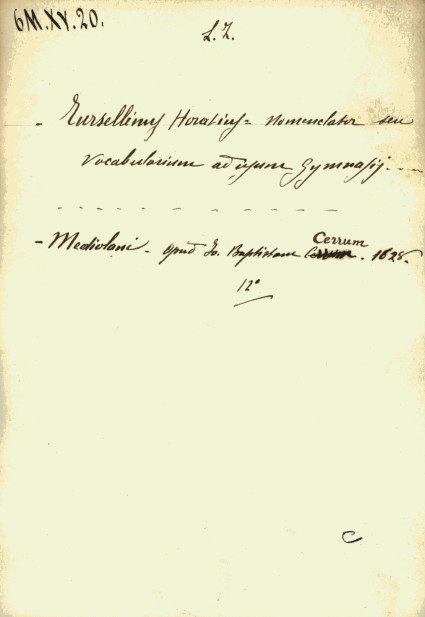 6M.XV.20.
L.Z.
- Tursellinus Horatius = Nomenclator seu
Vocabularium ad usum Gymnasij.
- Mediolani - apud Io. Baptistam Cerrum . 1628.
12°
C